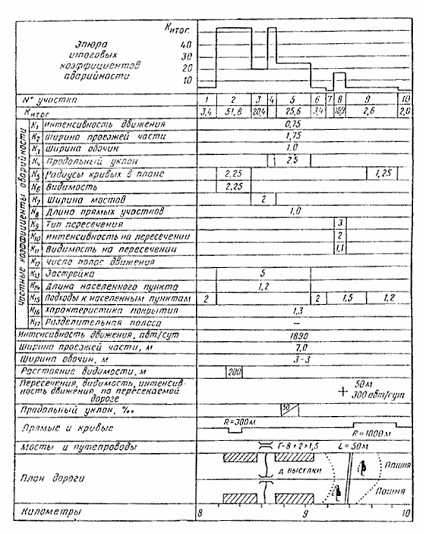 Kитог.
Эпюра
итоговых
коэффициентов
аварийности
40
30
20
10
N° участка
1 2 3 4 5 6 7 8 9 10
Kитог
3,4 51,8 20,4 25,6 3,4 2,6 2,0
Частные коэффициенты аварийности
K1 Интенсивность движения 0,75
K2 Ширина проезжей части 1,75
K3 Ширина обочин 1,0
K4 Продольный уклон 2,5
K5 Радиусы кривых в плане 2,25 1,25
K6 Видимость 2,25
K7 Ширина мостов 2
K8 Длина прямых участков 1,0
K9 Тип пересечения 3
K10 Интенсивность на пересечении 2
K11 Видимость на пересечении 1,1
K12 Число полос движения
K13 Застройка 5
K14 Длина населенного пункта 1,2
K15 Подходы к населенным пунктам 2 2 1,5 1,2
K16 Характеристика покрытия 1,3
K17 Разделительная полоса –
Интенсивность движения, авт/сут 1890
Ширина проезжей части, м 7,0
Ширина обочин, м 3-3
Расстояние видимости, м 200
Пересечения, видимость, интенсив-
ность движения, на пересекаемой
дороге
50м
300 авт/сут
Продольный уклон, ‰ 50
Прямые и кривые R=300м R=1000м
Мосты и путепроводы Г-8+2×1,5 L=50м
План дороги
д. Выселки
Пашня
Пашня
Километры 8 9 10